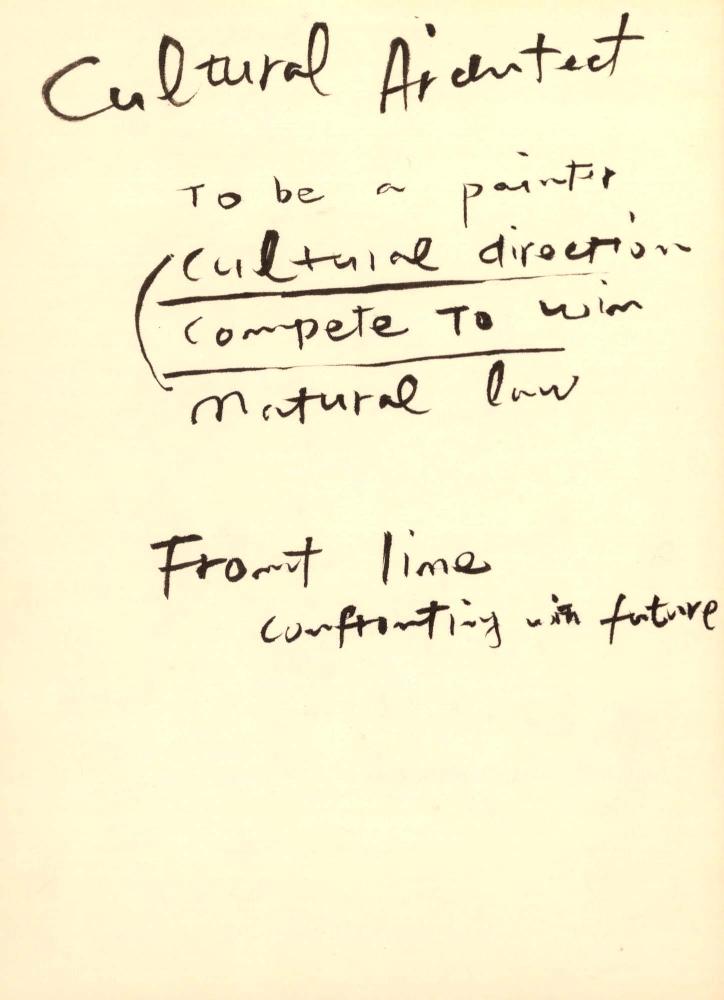 Cultural Architect
To be a painter
Cultural direction
Compete To win
Natural law
Front line
confronting with future